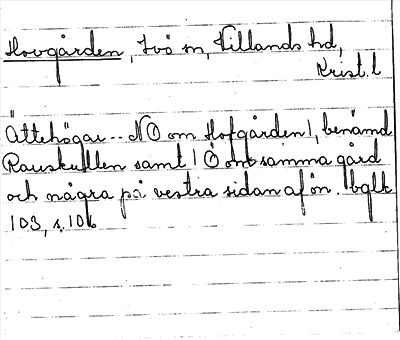 Hovgården, Ivö sn, Villands hd,
Krist. l
Ättehögar -- NO om Hofgården 1, benämd
Rauskullen samt 1 O om samma gård
och några på vestra sidan af ön. bglk
103, s. 106